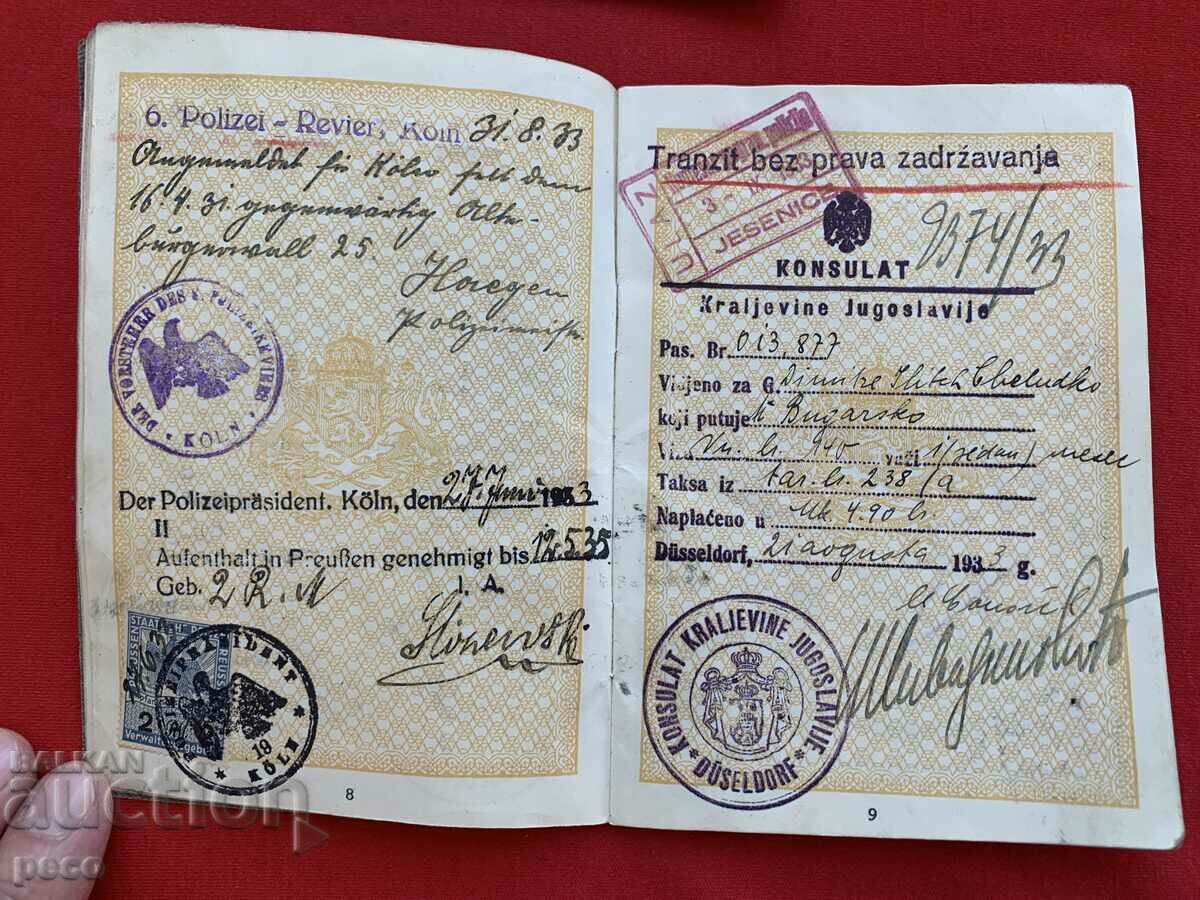 6. Polizei - Revier, Köln 31.8.33
Angemeldet für Köln seit dem
16.4.31 gegenwärtig Alte-
burgerwall 25.
Haegen
Polizeimeister
DER VORSTEHER DES 6. POLIZEIREVIERS
* KÖLN *
Der Polizeipräsident. Köln, den 27. Juni 1933
II
Aufenthalt in Preußen genehmigt bis 12.5.35
Geb. 2 R.M I. A.
PREUSSEN
STAATLICH
2
Verwaltungsgebühr
POLIZEIPRÄSIDENT
19
* KÖLN *
8
Tranzit bez prava zadržavanja
JESENICE
ULAZ
3 - IX
9374/33
KONSULAT
Kraljevine Jugoslavije
Pas. Br. 013,877
Vidjeno za G. Dimitre Ilitch
koji putuje u Bugarsko
Viza Un. br. 140 važi 1 (jedan) mesec
Taksa iz tar. br. 238/a
Naplaćeno u Mk. 4.90
Düsseldorf, 21 avgusta 1933 g.
* KONSULAT KRALJEVINE JUGOSLAVIJE *
DÜSSELDORF
9
BALKAN
auction
peco